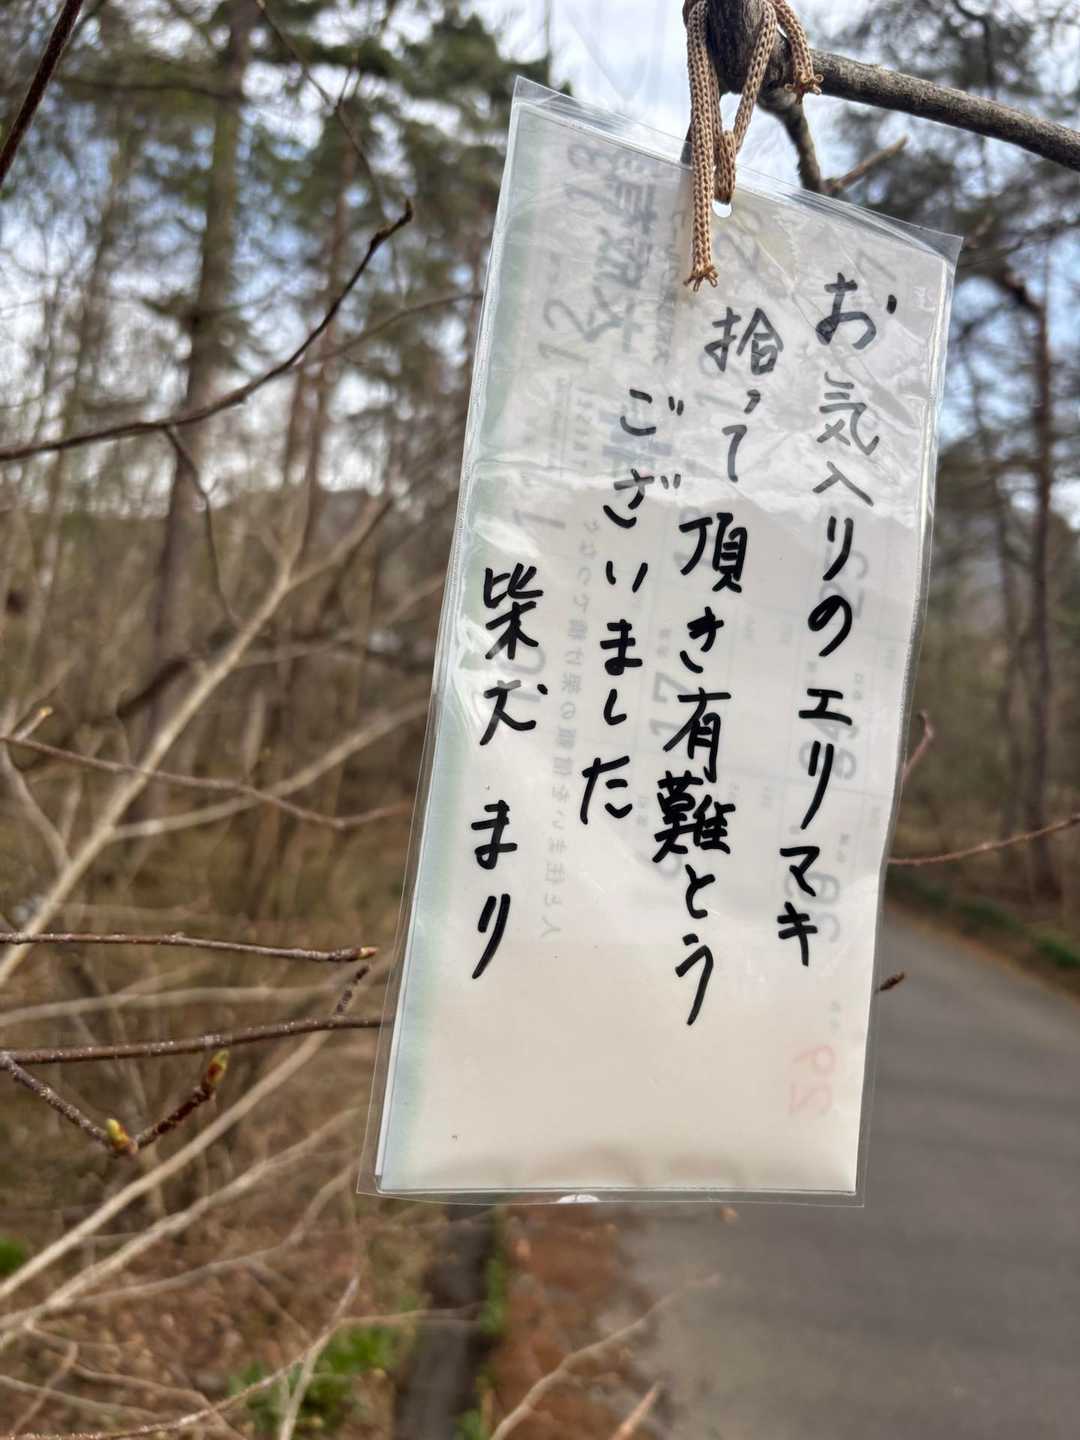 お気入りのエリマキ
拾って頂き有難とう
ございました
柴犬 まり